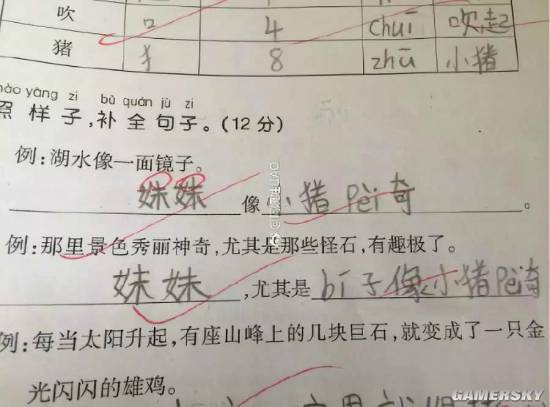 吹 口 4 chuī 吹起
猪 犭 8 zhū 小猪
zhào yàng zi bǔ quán jù zi
照样子,补全句子。(12分)
例:湖水像一面镜子。
妹妹像小猪Pèi奇。
例:那里景色秀丽神奇,尤其是那些怪石,有趣极了。
妹妹,尤其是bí子像小猪Pèi奇
例:每当太阳升起,有座山峰上的几块巨石,就变成了一只金
光闪闪的雄鸡。
GAMERSKY